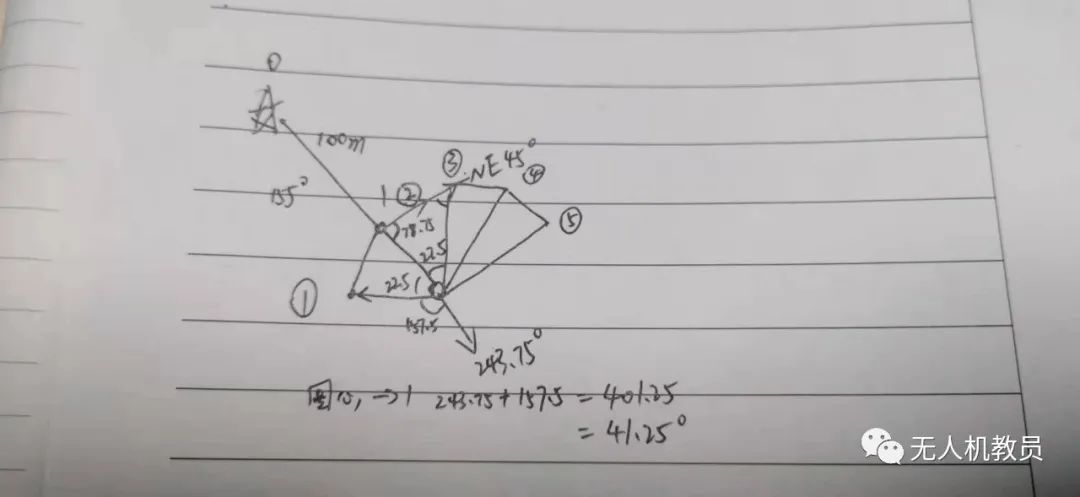 0
100m
135°
1
②
③
NE45°
④
⑤
78.75
22.5
22.5
①
157.5
243.75°
圆心,→1 243.75+157.5=401.25
=41.25°
无人机教员